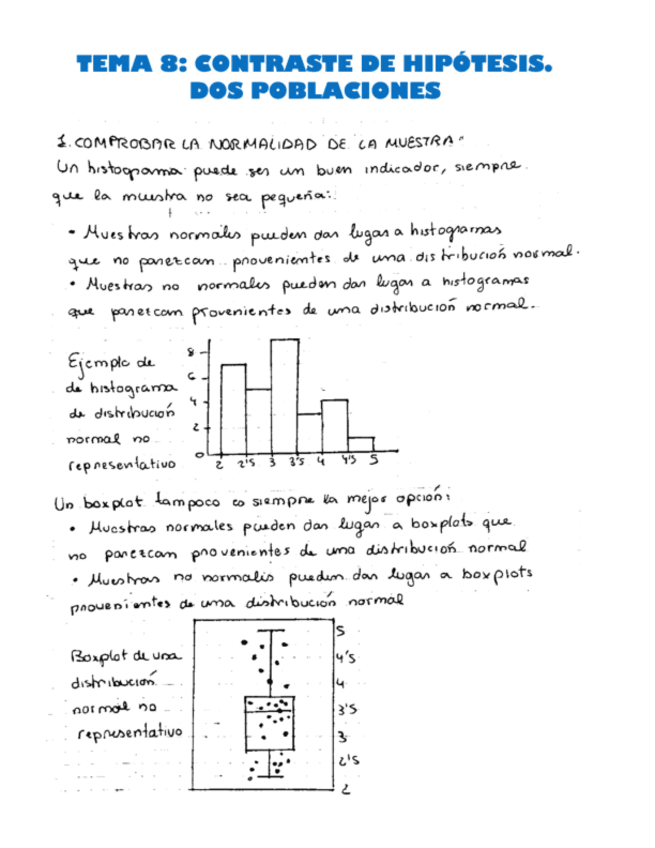 TEMA 8: CONTRASTE DE HIPÓTESIS.
DOS POBLACIONES
1. COMPROBAR LA NORMALIDAD DE LA MUESTRA
Un histograma puede ser un buen indicador, siempre
que la muestra no sea pequeña:
• Muestras normales pueden dar lugar a histogramas
que no parezcan provenientes de una distribución normal.
• Muestras no normales pueden dar lugar a histogramas
que parezcan provenientes de una distribución normal.
Ejemplo de
de histograma
de distribución
normal no
representativo
8
6
4
2
0
2 2'5 3 3'5 4 4'5 5
Un boxplot tampoco es siempre la mejor opción:
• Muestras normales pueden dar lugar a boxplots que
no parezcan provenientes de una distribución normal
• Muestras no normales pueden dar lugar a boxplots
provenientes de una distribución normal
Boxplot de una
distribución
normal no
representativo
5
4'5
4
3'5
3
2'5
2